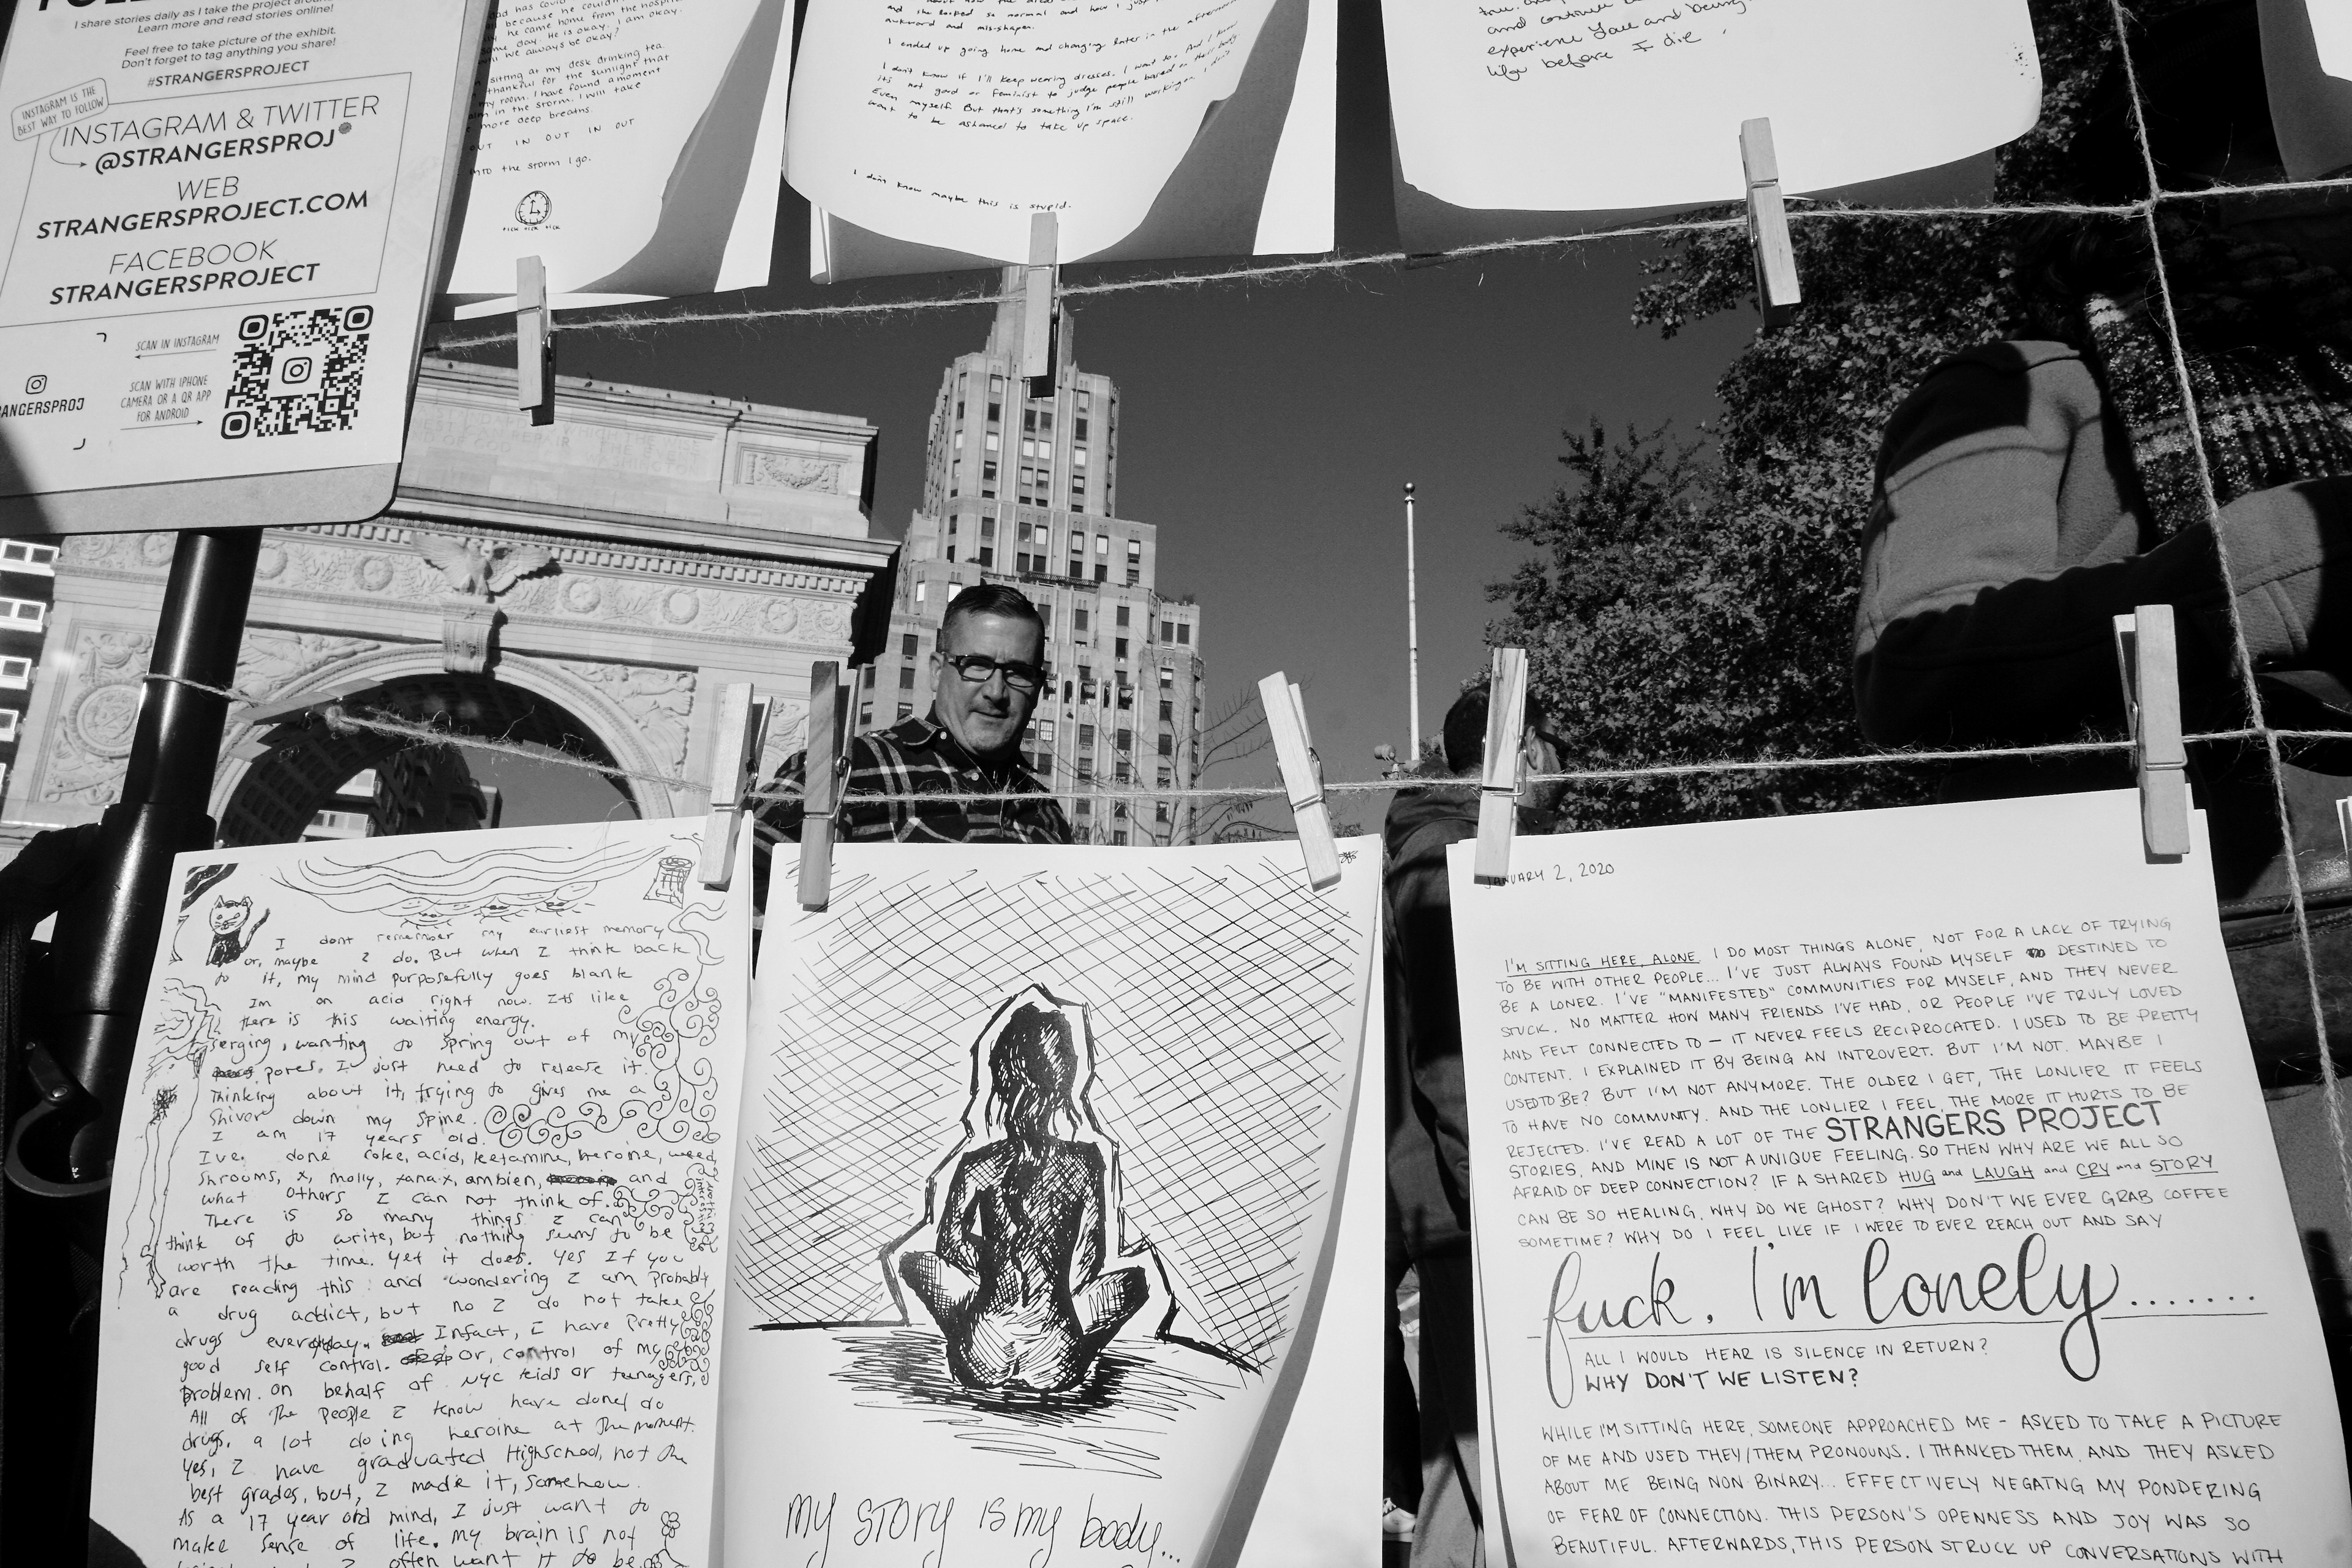 I share stories daily as I take the project around
Learn more and read stories online!
Feel free to take picture of the exhibit.
Don't forget to tag anything you share!
#STRANGERSPROJECT
INSTAGRAM IS THE
BEST WAY TO FOLLOW
INSTAGRAM & TWITTER
@STRANGERSPROJ
WEB
STRANGERSPROJECT.COM
FACEBOOK
STRANGERSPROJECT
SCAN IN INSTAGRAM
SCAN WITH IPHONE
CAMERA OR A QR APP
FOR ANDROID
ANGERSPROJ
because he couldn't
he came home from the hospital
same day. He is okay. I am okay.
we always be okay?
sitting at my desk drinking tea
thankful for the sunlight that
my room. I have found a moment
in the storm. I will take
more deep breaths.
OUT IN OUT IN OUT
into the storm I go.
TICK TICK TICK
and she looked so normal and how I just
awkward and mis-shapen.
I ended up going home and changing later in the afternoon
I don't know if I'll keep wearing dresses. I want to. And I know
its not good or feminist to judge people based on their body
Even myself. But that's something I'm still working on. I don't
want to be ashamed to take up space.
I don't know maybe this is stupid.
and continue
experience you and being
life before I die.
I dont remember my earliest memory
or, maybe I do. But when I think back
to it, my mind purposefully goes blank
Im on acid right now. Its like
there is this waiting energy.
serging, wanting to spring out of my
pores. I just need to release it.
Thinking about it, trying to gives me a
shiver down my spine.
I am 17 years old.
Ive done coke, acid, ketamine, herione, weed,
shrooms, x, molly, xanax, ambien, and
what others I can not think of.
There is so many things I can
think of to write, but nothing seems to be
worth the time. Yet it does. Yes If you
are reading this and wondering I am probably
a drug addict, but no I do not take
drugs everyday. Infact, I have Pretty
good self control. Or, control of my
problem. On behalf of NYC kids or teenagers,
All of The People I know have done/do
drugs, a lot doing heroine at The moment.
Yes, I have graduated Highschool, not the
best grades, but, I made it, somehow.
As a 17 year old mind, I just want to
make sense of life. my brain is not
often want it to be
My story is my body...
JANUARY 2, 2020
I'M SITTING HERE, ALONE. I DO MOST THINGS ALONE, NOT FOR A LACK OF TRYING
TO BE WITH OTHER PEOPLE... I'VE JUST ALWAYS FOUND MYSELF DESTINED TO
BE A LONER. I'VE "MANIFESTED" COMMUNITIES FOR MYSELF, AND THEY NEVER
STUCK. NO MATTER HOW MANY FRIENDS I'VE HAD, OR PEOPLE I'VE TRULY LOVED
AND FELT CONNECTED TO — IT NEVER FEELS RECIPROCATED. I USED TO BE PRETTY
CONTENT. I EXPLAINED IT BY BEING AN INTROVERT. BUT I'M NOT. MAYBE I
USED TO BE? BUT I'M NOT ANYMORE. THE OLDER I GET, THE LONLIER IT FEELS
TO HAVE NO COMMUNITY. AND THE LONLIER I FEEL, THE MORE IT HURTS TO BE
REJECTED. I'VE READ A LOT OF THE STRANGERS PROJECT
STORIES, AND MINE IS NOT A UNIQUE FEELING. SO THEN WHY ARE WE ALL SO
AFRAID OF DEEP CONNECTION? IF A SHARED HUG and LAUGH and CRY and STORY
CAN BE SO HEALING, WHY DO WE GHOST? WHY DON'T WE EVER GRAB COFFEE
SOMETIME? WHY DO I FEEL LIKE IF I WERE TO EVER REACH OUT AND SAY
fuck. I'm lonely.......
ALL I WOULD HEAR IS SILENCE IN RETURN?
WHY DON'T WE LISTEN?
WHILE I'M SITTING HERE, SOMEONE APPROACHED ME – ASKED TO TAKE A PICTURE
OF ME AND USED THEY/THEM PRONOUNS. I THANKED THEM, AND THEY ASKED
ABOUT ME BEING NON BINARY... EFFECTIVELY NEGATNG MY PONDERING
OF FEAR OF CONNECTION. THIS PERSON'S OPENNESS AND JOY WAS SO
BEAUTIFUL. AFTERWARDS, THIS PERSON STRUCK UP CONVERSATIONS WITH